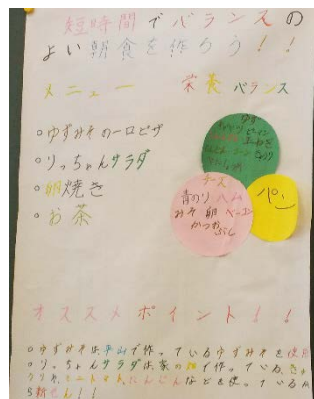 短時間でバランスの
よい朝食を作ろう！！
メニュー 栄養バランス
○ゆずみその一口ピザ
○りっちゃんサラダ
○卵焼き
○お茶
ゆず
チーズ
青のり ハム
みそ 卵 ベーコン
かつおぶし
パン
オススメポイント！！
○ゆずみそは平山で作っているゆずみそを使用
○りっちゃんサラダは家の畑で作っている、きゅ
うり、ミニトマト、にんじんなどを使っているか
ら新せん！！